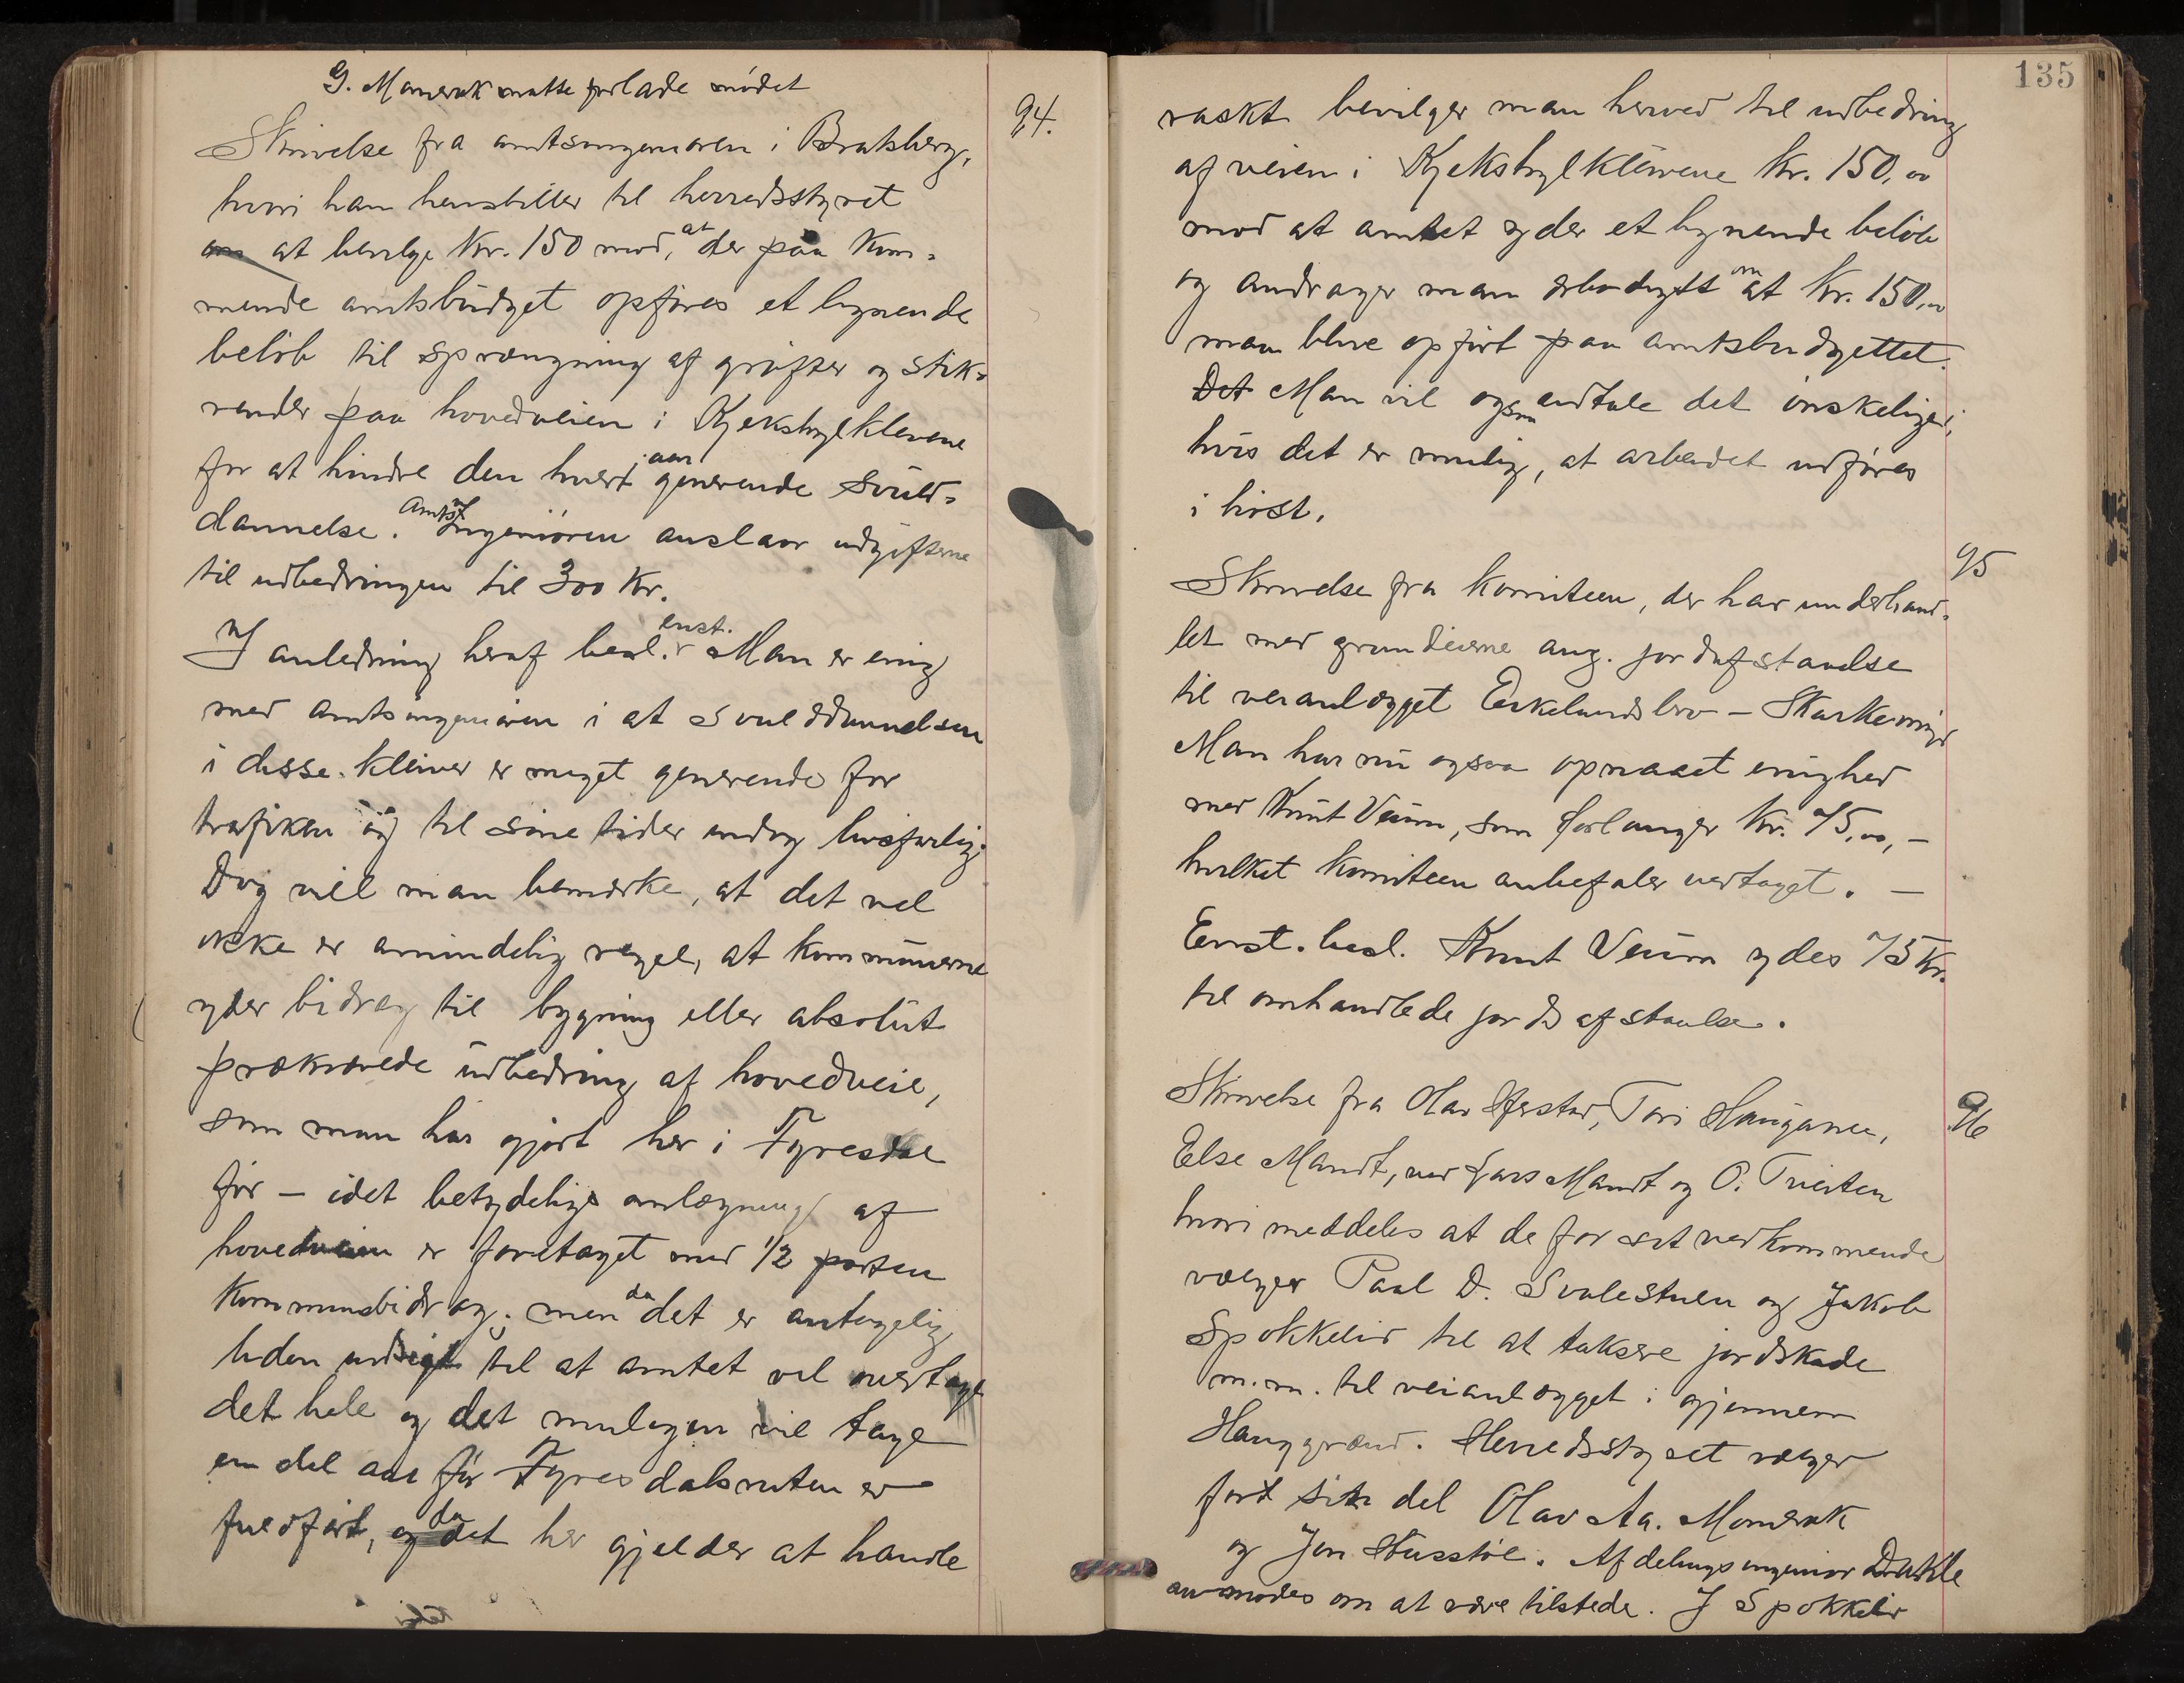 G. Momrak matte forlade mødet
94.
Skrivelse fra amtsingeniøren i Bratsberg,
hvori han henstiller til herredsstyret
om at bevilge Kr. 150 mod, at der paa Kom-
mende amtsbudget opføres et lignende
beløb til sprængning af grøfter og stik-
render paa hovedveien i Kjekstvylklevene
for at hindre den hvert aar generende svuld-
dannelse. Amtsingeniøren anslaar udgifterne
til udbedringen til 300 Kr.
I anledning heraf besl. enst. Man er enig
med amtsingeniøren i at svulddannelsen
i disse kleiver er meget generende for
trafiken og til sine tider endog livsfarlig.
Dog vil man bemærke, at det vel
ikke er almindelig regel, at kommunerne
yder bidrag til bygning eller absolut
prækærede udbedring af hovedveie,
som man har gjort her i Fyresdal
før — idet betydelige omlægning af
hovedveien er foretaget med 1/2 parten
Kommunebidrag; men da det er antagelig
liden udsigt til at amtet vil overtage
det hele og det muligens vil tage
en del aar før Fyresdalsruten er
fuldført, og da det her gjelder at handle
135
raskt bevilger man herved til udbedring
af veien i Kjekstvylkleivene Kr. 150,00
mod at amtet yder et lignende beløb
og andrager man ærbødigst om at Kr. 150,00
maa blive opført paa amtsbudgettet.
Det Man vil ogsaa udtale det ønskelige i,
hvis det er mulig, at arbeidet udføres
i høst.
95
Skrivelse fra Komiteen, der har underhand-
let med grundeierne ang. jordafstaaelse
til veianlægget Eikelundsbro - Skarkemyr
Man har nu ogsaa opnaaet enighed
med Knut Veum, som forlanger Kr. 75,00, -
hvilket Komiteen anbefaler vedtaget. —
Enst. besl. Knut Veum ydes 75 Kr.
til omhandlede jordsafstaaelse.
96
Skrivelse fra Olav Tori Haugane,
Else Mandt, ved Lars Mandt og O. Tveiten
hvori meddeles at de for sit vedkommende
vælger Paal D. Svalestuen og Jakob
Spokkelid til at taksere jordskade
m.m. til veianlægget i gjennem
Hauggrænd. Herredsstyret vælger
fort sin del Olav Aa. Momrak
og Jon Husstøl. Afdelingsingeniør
anmodes om at være tilstede. I Spokkelid